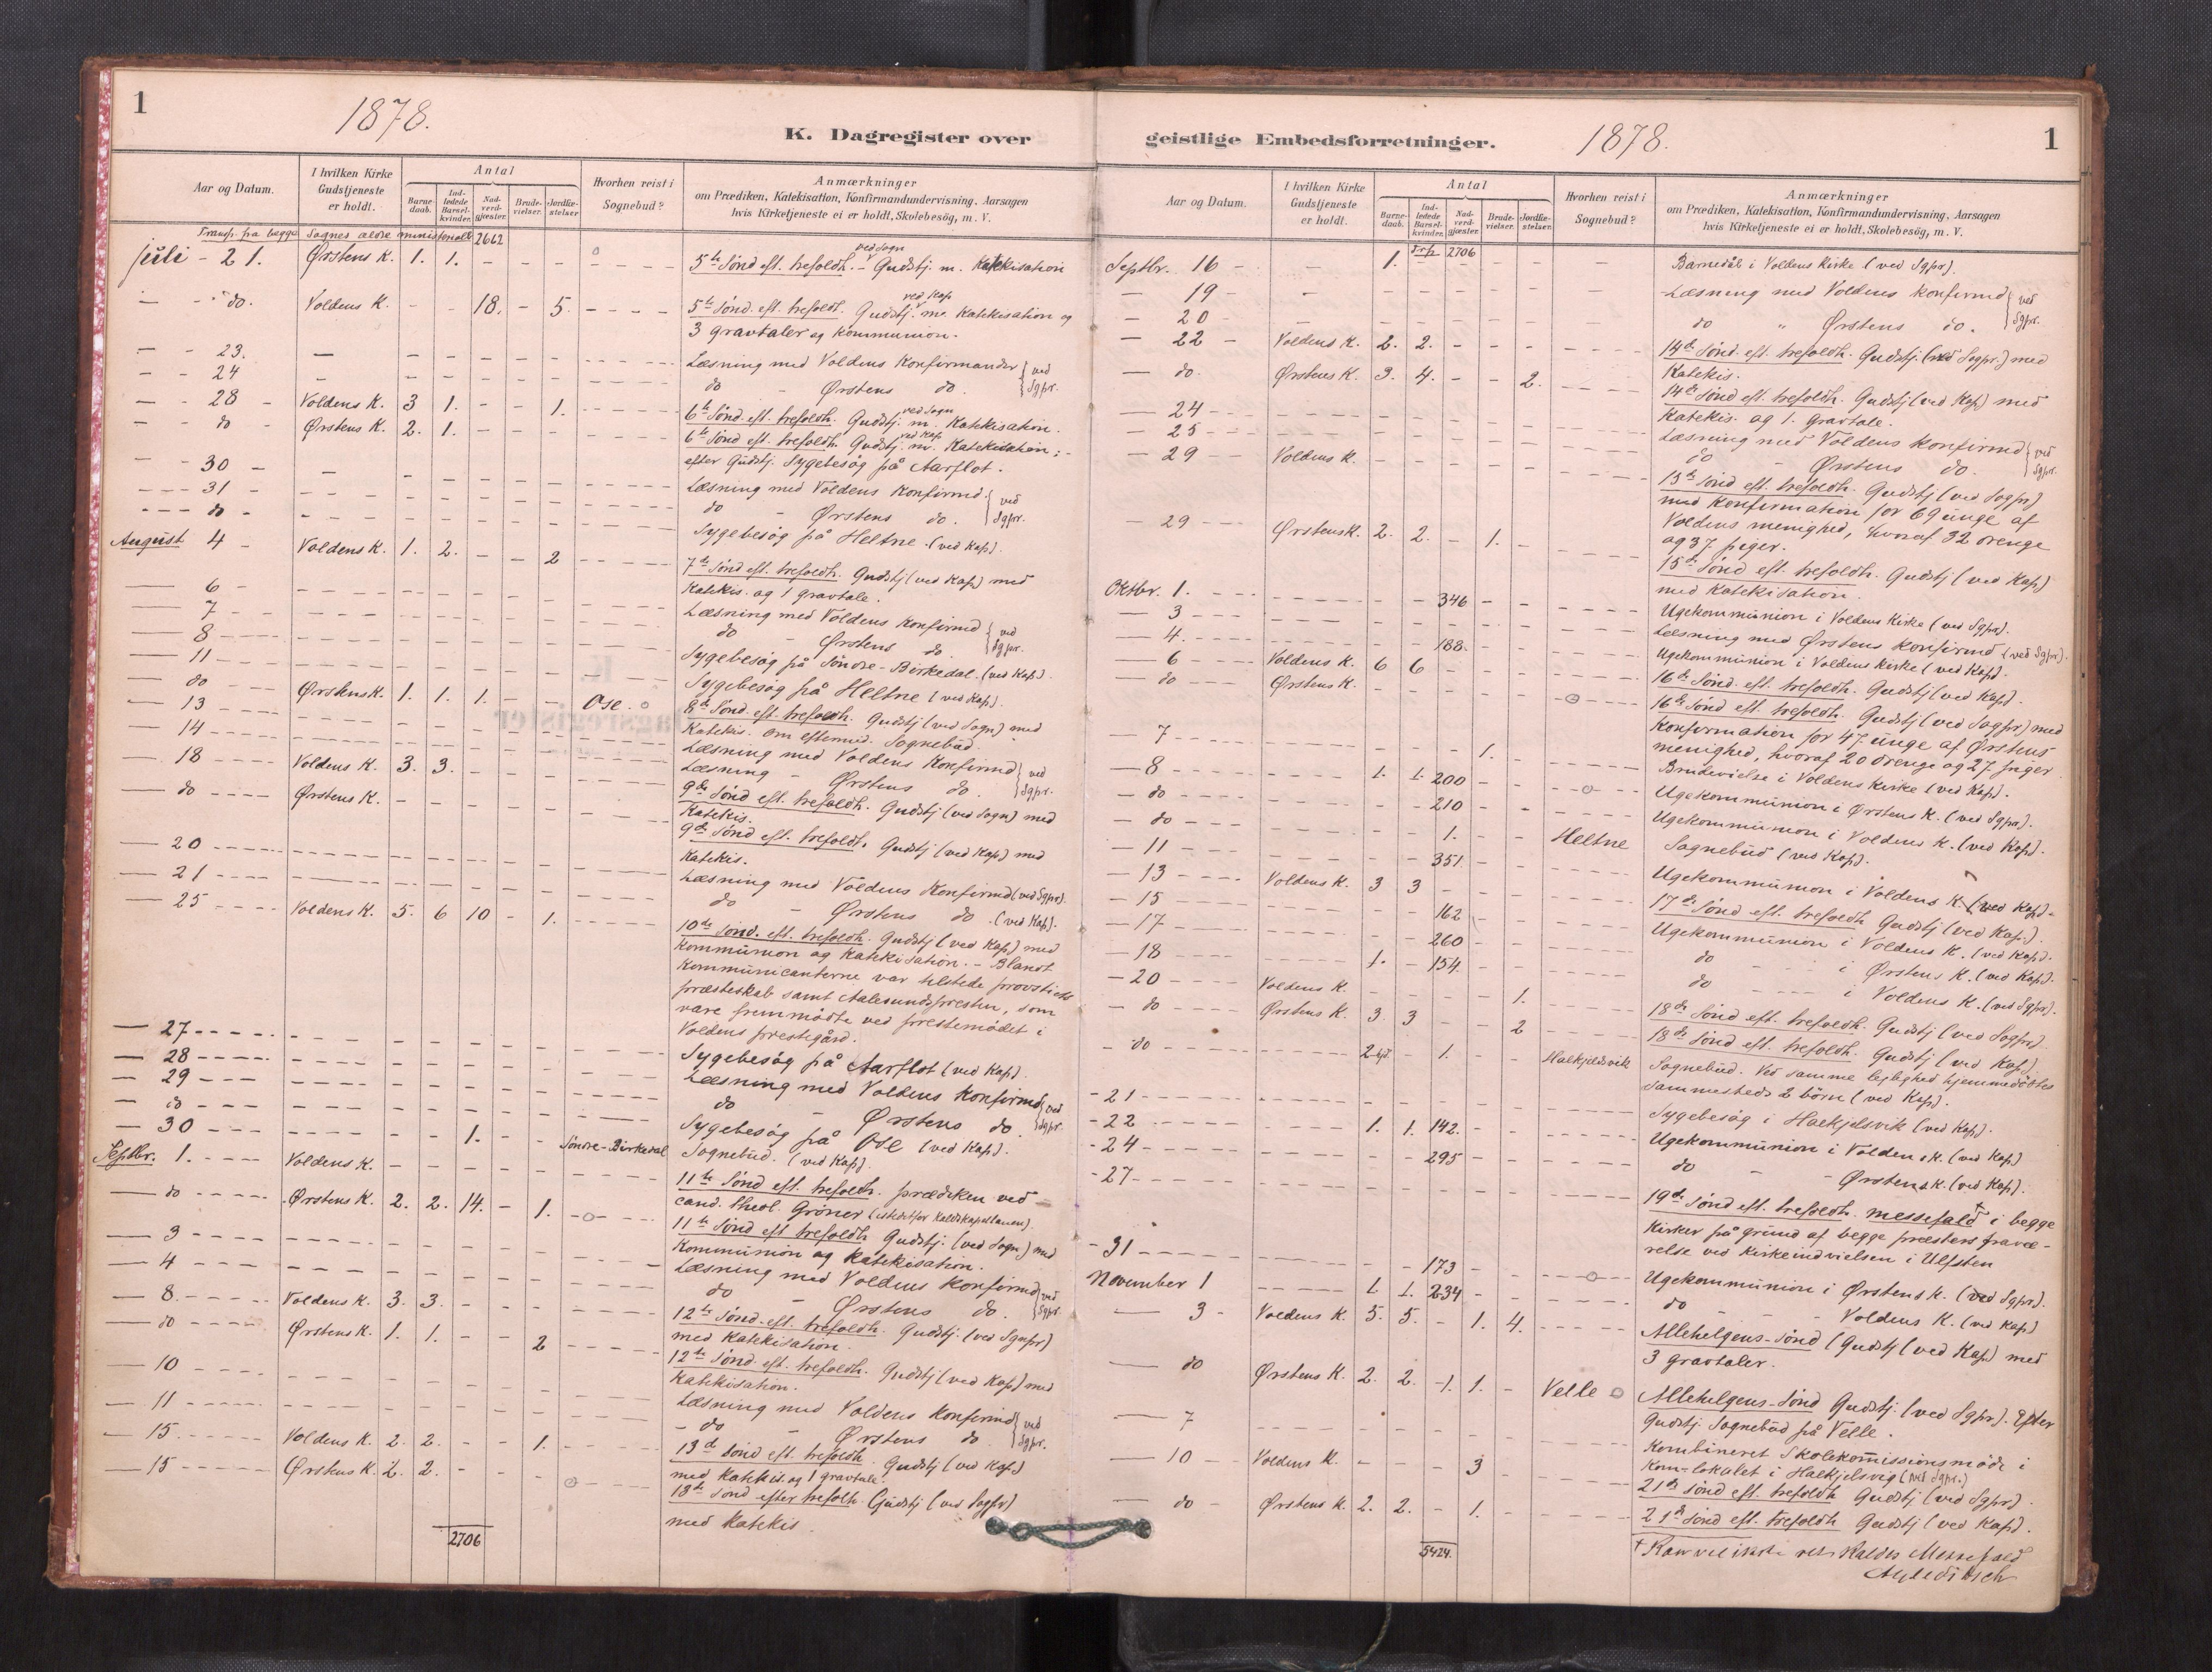 1
1878.
K. Dagregister over
Aar og Datum.
I hvilken Kirke Gudstjeneste er holdt.
Antal
Barne daab.
Ind- ledede Barsel- kvinder.
Nad- verd- gjæster.
Brude- vielser.
Jordfæ- stelser
Hvorhen reist i Sognebud?
Anmærkninger
om Prædiken, Katekisation, Konfirmandundervisning, Aarsagen
hvis Kirketjeneste ei er holdt, Skolebesög, m. V.
Transp. fra begge Sognes ældre ministerialb. 2662
juli - 21. Ørstens K. 1. 1. - - - 5te Sönd. eft. trefoldh. - Gudstj. ved Sogn m. Katekisation
- - do. Voldens K. - - 18. - 5. - - - - 5te Sönd. eft. trefoldh. Gudstj. ved Kap m. Katekisation og
3 gravtaler og kommunion.
- - 23. - Læsning med Voldens Konfirmander } ved
- - 24 - do - Ørstens do. } Sgpr.
- - 28 - Voldens K. 3 1. - - 1. - - - - 6te Sönd. eft. trefoldh. Gudstj. ved Sogn m. Katekisation.
- - do - Ørstens K. 2. 1. - - - 6te Sönd eft. trefoldh. Gudstj. ved Kap m. Katekisation; -
efter Gudstj. Sygebesög på Aarflot.
- - 30 - Læsning med Voldens Konfirmd. } ved
- - - 31 - do - Ørstens do. } Sgpr.
- - - do - Sygebesög på Heltne. (ved Kap).
August 4 - Voldens K. 1. 2. - - 2 - - - - 7de Sönd eft. trefoldh. Gudstj (ved Kap) med
Katekis. og 1 gravtale.
- 6 - Læsning med Voldens Konfirmd } ved
- 7 - do - Ørstens do. } Sgpr.
- 8 - Sygebesög på Söndre-Birkedal. (ved Kap).
- 11 - Sygebesög på Heltne (ved Kap).
- do - Ørstens K. 1. 1. 1. - - Ose. 8de Sönd. eft. trefoldh. Gudstj (ved Sogn) med
Katekis. Om eftermid. Sognebud.
- 13 - Læsning med Voldens Konfirmd } ved
- 14 - Læsning - Ørstens do. } Sgpr.
- 18 - Voldens K. 3. 3. - - - 9de Sönd eft. trefoldh. Gudstj (ved Sogn) med
Katekis.
- do - Ørstens K. - - - 9de Sönd eft. trefoldh. Gudstj (ved Kap) med
Katekis.
- 20 - Læsning med Voldens Konfirmd (ved Sgpr).
- 21 - do - Ørstens do. (ved Kap).
- 25 - Voldens K. 5. 6 10 - 1. - 10de Sönd. eft. trefoldh. Gudstj (ved Kap) med
Kommunion og Katekisation. - Blandt
Kommunicanterne var tilstede provstiets
præsteskab samt Aalesundspresten, som
vare fremmödte ved prestemödet i
Voldens prestegård.
- 27 - Sygebesög på Aarflot (ved Kap).
- 28 - Læsning med Voldens Konfirmd } ved
- 29 - do - Ørstens do. } Sgpr.
- do - Sygebesög på Ose (ved Kap).
- 30 - 1. - - Söndre-Birkedal Sognebud. (ved Kap).
Septbr. 1. - Voldens K. - 11te Sönd eft. trefoldh. prædiken ved
cand. theol. Gröner (istedetfor Kaldskapellanen).
- do - Ørstens K. 2. 2. 14. - 1. - 11te Sönd eft trefoldh Gudstj. (ved Sogn) med
Kommunion og Katekisation.
- 3 - Læsning med Voldens Konfirmd } ved
- 4 - do - Ørstens do. } Sgpr.
- 8. - Voldens K. 3. 3. - - - 12te Sönd. eft. trefoldh. Gudstj. (ved Sgnpr)
med Katekisation.
- do - Ørstens K. 1. 1. - - 2 - 12te Sönd. eft. trefoldh. Gudstj (ved Kap) med
Katekisation.
- 10 - Læsning med Voldens Konfirmd } ved
- 11 - do - Ørstens do. } Sgpr.
- 15. - Voldens K. 2. 2. - - 1. - 13d Sönd eft. trefoldh. Gudstj (ved Kap)
med Katekis. og 1 gravtale.
- 15 - Ørstens K. 2. 2. - - - 13de Sönd efter trefolh. Gudstj (ved Sogpr)
med Katekis.
2706
geistlige Embedsforretninger.
1878.
1
Aar og Datum.
I hvilken Kirke Gudstjeneste er holdt.
Antal
Barne- daab.
Ind- ledede Barsel- kvinder.
Nad- verd- gjæster.
Brude- vielser.
Jordfæ- stelser.
Hvorhen reist i Sognebud?
Anmærkninger
om Prædiken, Katekisation, Konfirmandundervisning, Aarsagen
hvis Kirketjeneste ei er holdt, Skolebesög, m. V.
Trsp. 2706
Septbr. 16 - 1. - Barnedåb i Voldens Kirke (ved Sgpr).
- 19 - Læsning med Voldens Konfirmd } ved
- 20 - do " Ørstens do. } Sgpr.
- 22 - Voldens K. 2. 2. - - - 14de Sönd. eft. trefoldh. Gudstj. (ved Sogpr.) med
Katekis.
- do - Ørstens K. 3. 4. - - 2. - 14de Sönd eft. trefoldh. Gudstj (ved Kap) med
Katekis. og 1. Gravtale.
- 24 - Læsning med Voldens Konfirmd } ved
- 25 - do - Ørstens do. } Sgpr.
- 29 - Voldens K. - 15de Sönd eft. trefoldh. Gudstj (ved Sogpr)
med Konfirmation for 69 unge af
Voldens menighed, hvoraf 32 drenge
og 37 piger.
- 29 - Ørstens K. 2. 2. - 1. - 15de Sönd eft. trefoldh. Gudstj (ved Kap)
med Katekisation.
Oktbr. 1. - 346 - Ugekommunion i Voldens Kirke (ved Sgpr).
- 3 - Læsning med Ørstens Konfirmd (ved Sgpr).
- 4. - 188. - Ugekommunion i Voldens Kirke (ved Kap).
- 6 - Voldens K. 6 6 - 16de Sönd. eft. trefoldh. Gudstj (ved Kap).
- do - Ørstens K. - 16de Sönd eft. trefoldh. Gudstj (ved Sogpr) med
Konfirmation for 47 unge af Ørstens
menighed, hvoraf 20 drenge og 27 piger
- 7 - 1. - Brudevielse i Voldens Kirke (ved Kap).
- 8 - 1. 1. 200 - Ugekommunion i Ørstens K. (ved Sgpr).
- do - 210 - Ugekommunion i Voldens K. (ved Kap).
- do - 1. - Heltne Sognebud (ved Kap).
- 11 - 351. - Ugekommunion i Voldens K (ved Kap).
- 13 - Voldens K. 3 3 - 17de Sönd eft. trefoldh Gudstj (ved Kap.).
- 15 - 162 - Ugekommunion i Voldens K. (ved Kap).
- 17 - 260 - do - i Ørstens K. (ved Kap).
- 18 - 1. - 154. - do - i Voldens K. (ved Sgpr).
- 20 - Voldens K. - 1. - 18de Sönd eft. trefoldh. Gudstj (ved Sogpr).
- do - Ørstens K. 3. 3 - - 2 - 18de Sönd eft. trefoldh. Gudstj (ved Kap).
- do - 2 hjd. - 1. - - Halkjeldsvik Sognebud. Ved samme leylighed hjemmedöbtes
sammesteds 2 börn (ved Kap).
- 21 - Sygebesög i Halkjelsvik (ved Kap).
- 22 - 1. 1. 142. - Ugekommunion i Voldens K. (ved Kap)
- 24 - 295 - do - Ørstens K. (ved Kap).
- 27 - 19de Sönd eft. trefoldh. messefald † i begge
Kirker på grund af begge præsters fravæ-
relse ved Kirkeindvielsen i Ulfsten
- 31 - 173 - Ugekommunion i Ørstens K. (ved Sgpr).
November 1 - 1. 1. 234 - do - Voldens K. (ved Kap)
- 3 - Voldens K. 5. 5. - 1. 4. - Allehelgens-Sönd (Gudstj (ved Kap) med
3 gravtaler.
- do Ørstens K. 2. 2. -1. 1. - Velle Allehelgens-Sönd Gudstj. (ved Sgpr). Efter
Gudstj. Sognebud på Velle.
- 7 - Kombineret Skolekommissionsmöde i
Kom-lokalet i Halkjelsvig (ved Sgpr.)
- 10 - Voldens K. - - - 3 - 21de sönd eft. trefoldh Gudstj (ved Sgpr).
- do - Ørstens K. 2. 2. - 1. - 21de sönd eft. trefoldh Gudstj (ved Kap).
5424.
† Kan vel ikke Kaldes Messefald